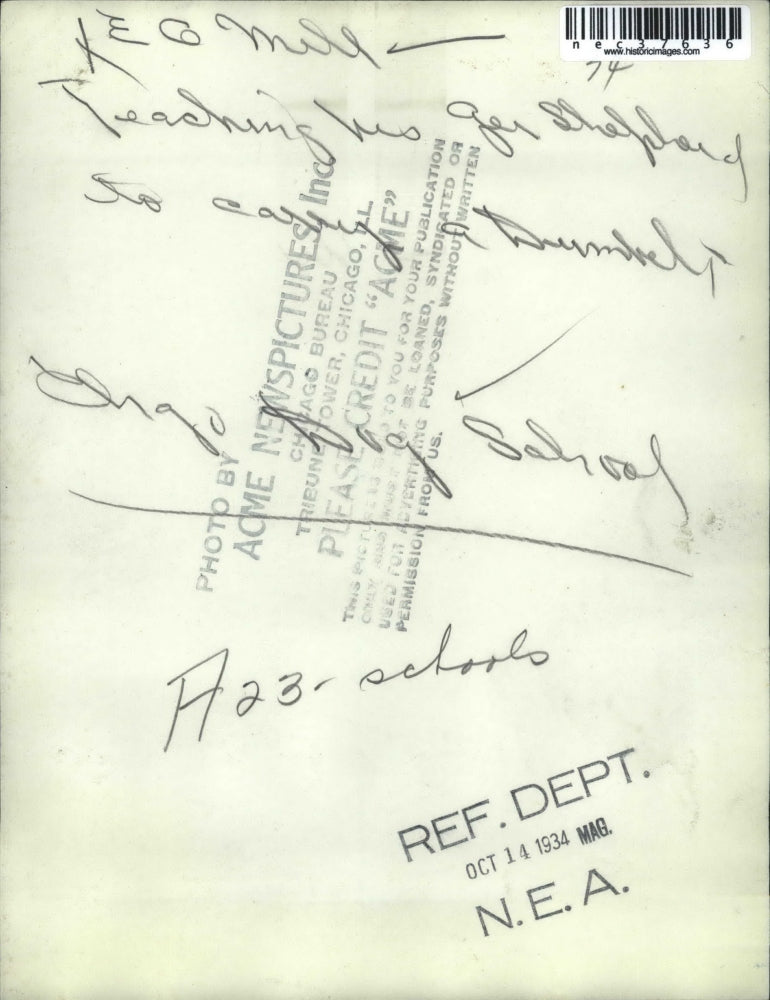 nec37636
www.historicimages.com
E G Mill —
74
Teaching his Ger Shephard
to carry a Dumbell
Dog School
PHOTO BY
ACME NEWSPICTURES, Inc.
CHICAGO BUREAU
TRIBUNE TOWER, CHICAGO, ILL.
PLEASE CREDIT “ACME”
THIS PICTURE IS TO YOU FOR YOUR PUBLICATION
ONLY AND MUST NOT BE LOANED, SYNDICATED OR
USED FOR ADVERTISING PURPOSES WITHOUT WRITTEN
PERMISSION FROM US.
A23- schools
REF. DEPT.
OCT 14 1934 MAG.
N.E.A.